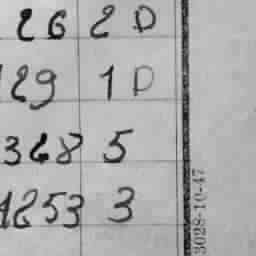 26 2 D
129 1 D
328 5
1253 3
3028-10-47